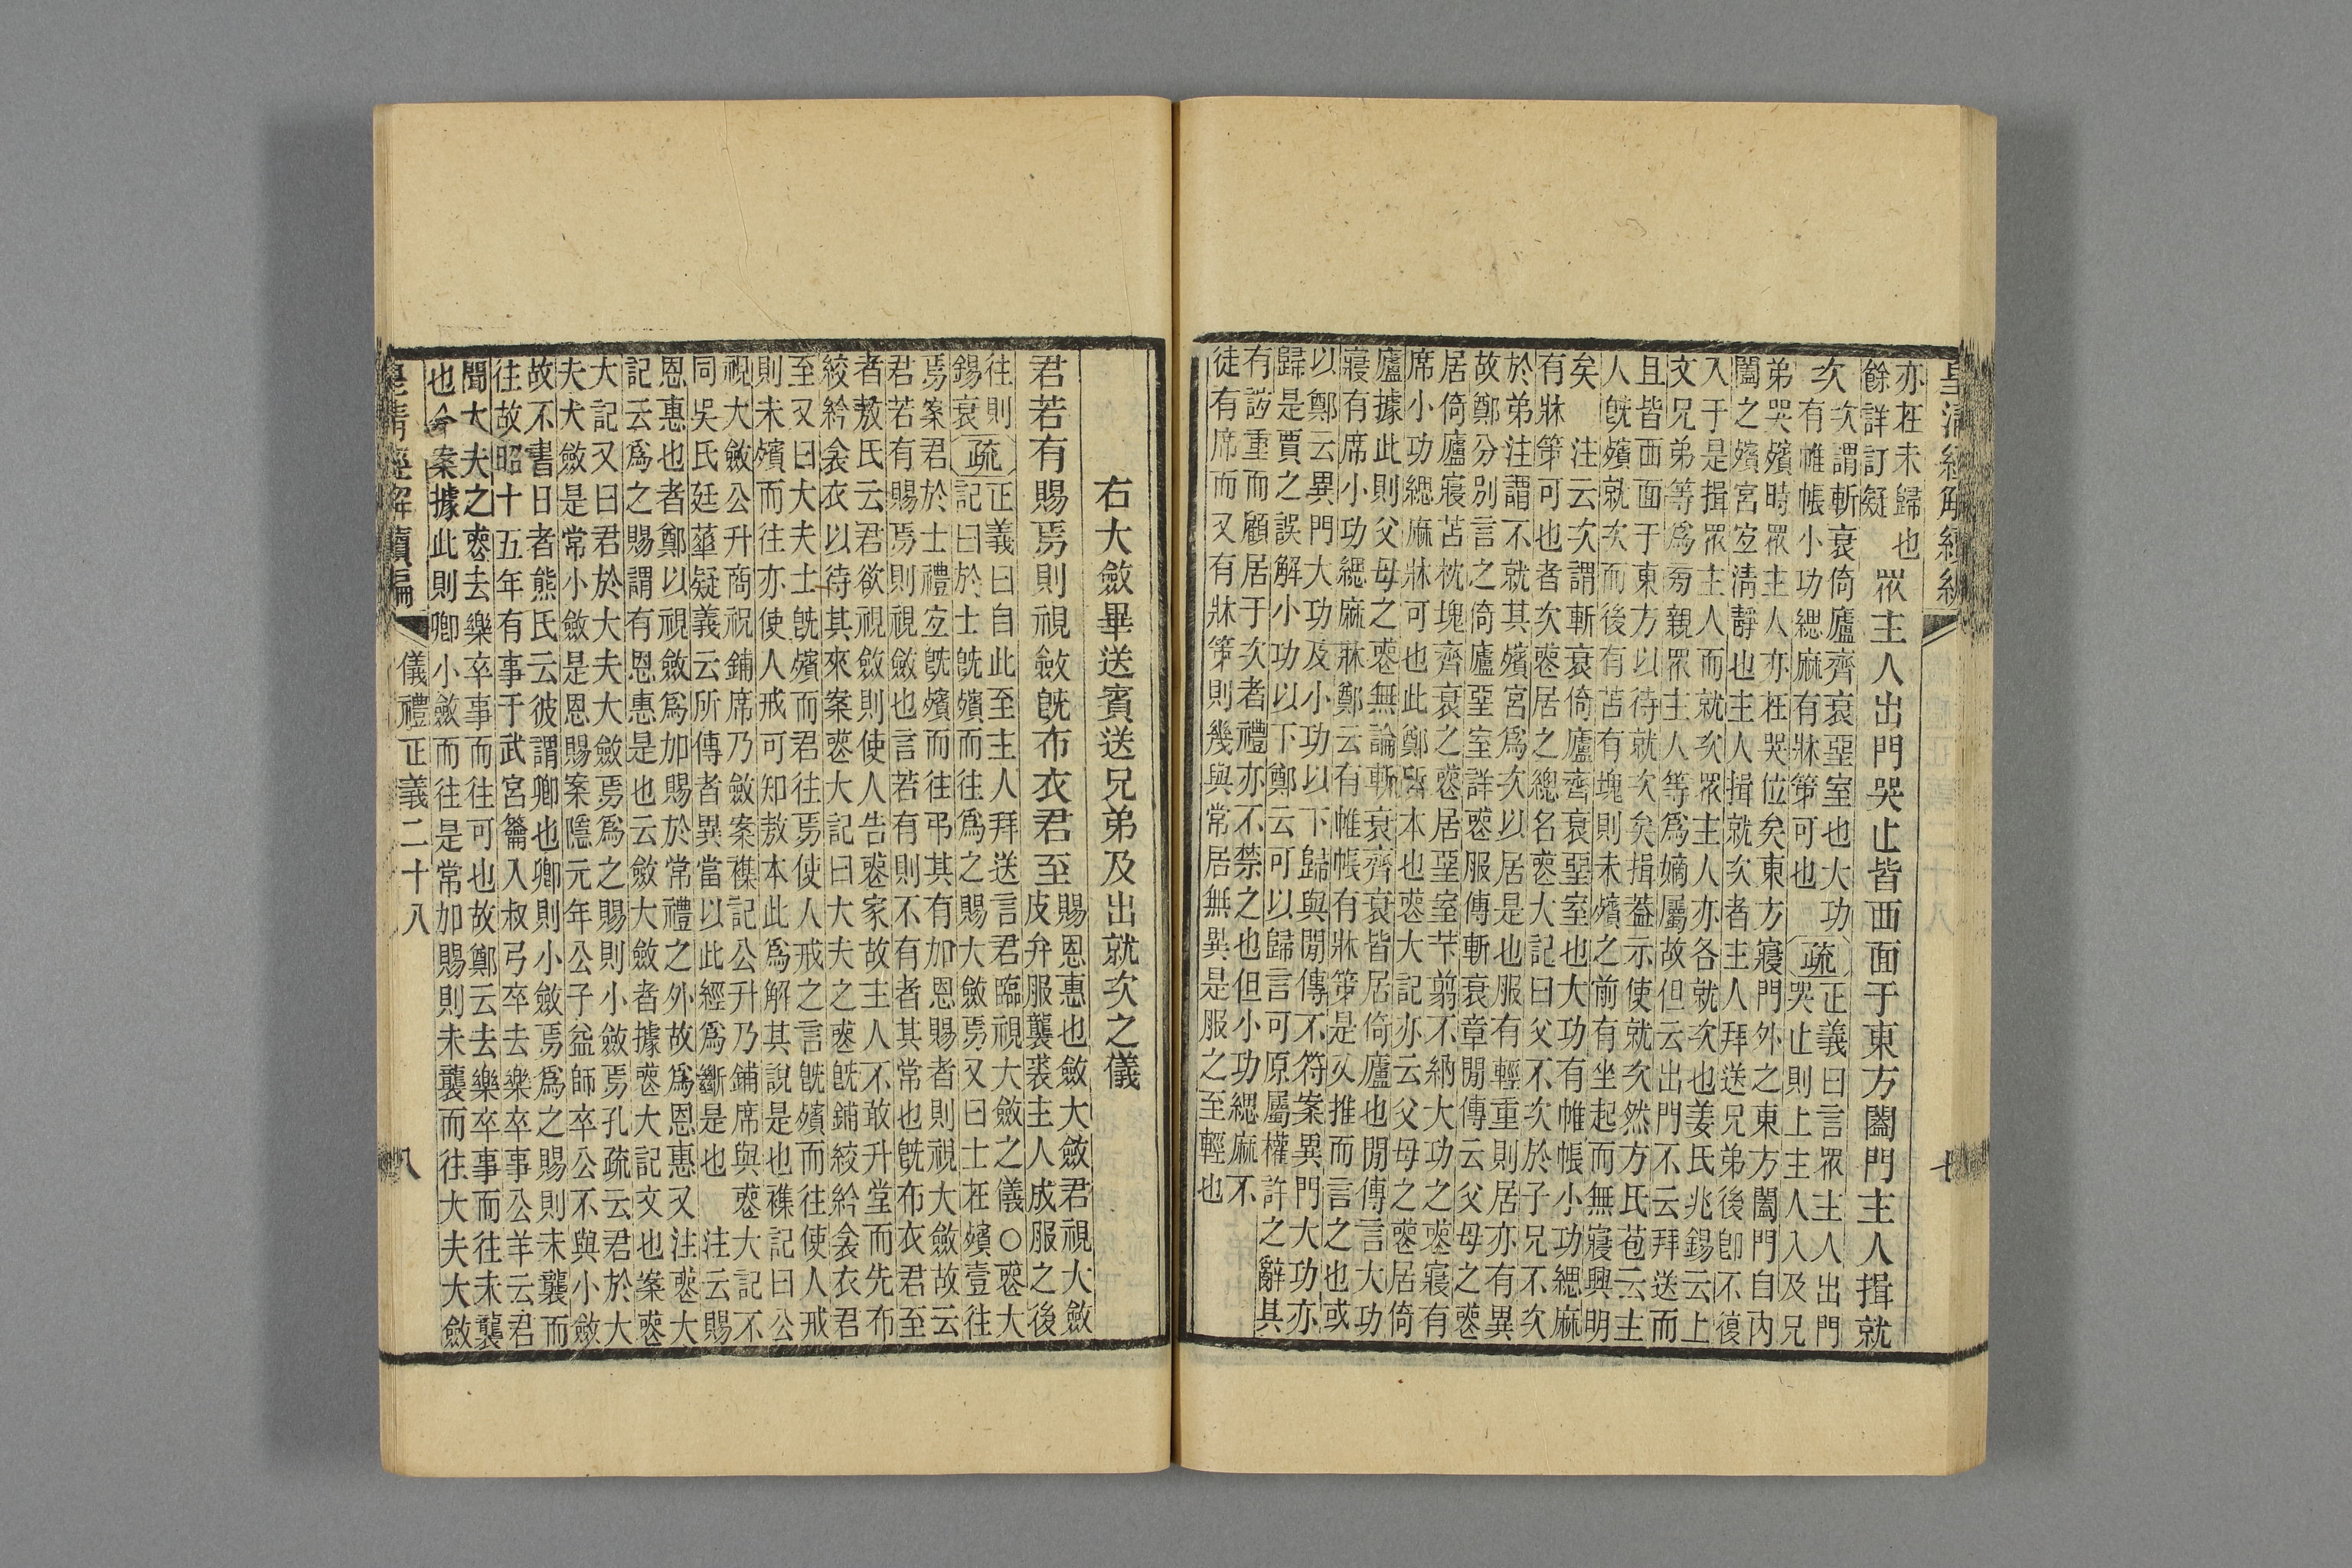 皇清經解續編
亦在未歸也
餘詳訂疑
眾主人出門哭止皆西面于東方闔門主人揖就
次
次謂斬衰倚廬齊衰堊室也大功
有帷帳小功緦麻有牀笫可也
疏
正義曰言眾主人出門
哭止則上主人入及兄
弟哭殯時眾主人亦在哭位矣東方寢門外之東方闔門自內
闔之殯宮宐淸靜也主人揖就次者主人拜送兄弟後卽不復
入于是揖眾主人而就次眾主人亦各就次也姜氏兆錫云上
文兄弟等爲匆親眾主人等爲嫡屬故但云出門不云拜送而
且皆西面于東方以待就次矣揖葢示使就次然方氏苞云主
人旣殯就次而後有苫有塊則未殯之前有坐起而無寢興明
矣　注云次謂斬衰倚廬齊衰堊室也大功有帷帳小功緦麻
有牀笫可也者次喪居之總名喪大記曰父不次於子兄不次
於弟注謂不就其殯宮爲次以居是也服有輕重則居亦有異
故鄭分別言之倚廬堊室詳喪服傳斬衰章閒傳云父母之喪
居倚廬寢苫枕塊齊衰之喪居堊室苄翦不納大功之喪寢有
席小功緦麻牀可也此鄭所本也喪大記亦云父母之喪居倚
廬據此則父母之喪無論斬衰齊衰皆居倚廬也閒傳言大功
寢有席小功緦麻牀鄭云有帷帳有牀笫是又推而言之也或
以鄭云異門大功及小功以下歸與閒傳不符案異門大功亦
歸是賈之誤解小功以下鄭云可以歸言可原屬權許之辭其
有誼重而顧居于次者禮亦不禁之也但小功緦麻不
徒有席而又有牀笫則幾與常居無異是服之至輕也
右大斂畢送賓送兄弟及出就次之儀
君若有賜焉則視斂旣布衣君至
賜恩惠也斂大斂君視大斂
皮弁服襲裘主人成服之後
往則
錫衰
疏
正義曰自此至主人拜送言君臨視大斂之儀○喪大
記曰於士旣殯而往爲之賜大斂焉又曰士在殯壹往
焉案君於士禮宐旣殯而往弔其有加恩賜者則視大斂故云
君若有賜焉則視斂也言若有則不有者其常也旣布衣君至
者敖氏云君欲視斂則使人告喪家故主人不敢升堂而先布
絞紟衾衣以待其來案喪大記曰大夫之喪旣鋪絞紟衾衣君
至又曰大夫士旣殯而君往焉使人戒之言旣殯而往使人戒
則未殯而往亦使人戒可知敖本此爲解其說是也襍記曰公
視大斂公升商祝鋪席乃斂案襍記公升乃鋪席與喪大記不
同吳氏廷華疑義云所傳者異當以此經爲斷是也　注云賜
恩惠也者鄭以視斂爲加賜於常禮之外故爲恩惠又注喪大
記云爲之賜謂有恩惠是也云斂大斂者據喪大記文也案喪
大記又曰君於大夫大斂焉爲之賜則小斂焉孔疏云君於大
夫大斂是常小斂是恩賜案隱元年公子益師卒公不與小斂
故不書日者熊氏云彼謂卿也卿則小斂焉爲之賜則未襲而
往故昭十五年有事于武宮籥入叔弓卒去樂卒事公羊云君
聞大夫之喪去樂卒事而往可也故鄭云去樂卒事而往未襲
也今案據此則卿小斂而往是常加賜則未襲而往大夫大斂
皇清經解續編
儀禮正義二十八
八